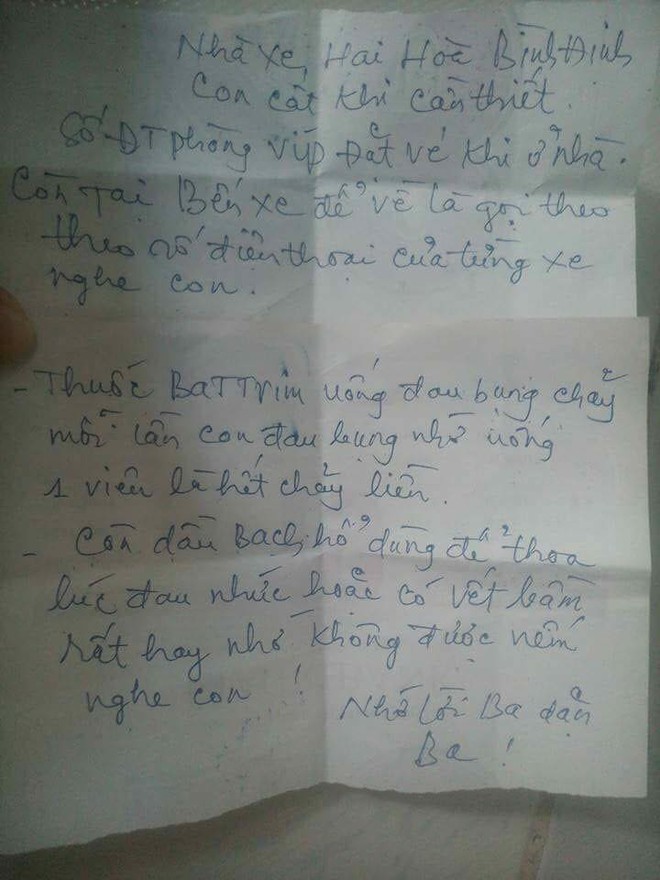 Nhà xe, Hai Hoà Bình Định
Con cất khi cần thiết.
Số ĐT phòng vip Đặt vé khi ở nhà.
Còn Tại Bến xe để về là gọi theo
theo số điện thoại của từng xe
nghe con.
- Thuốc BaTTrim uống đau bụng chảy
mỗi lần con đau bụng nhớ uống
1 viên là hết chảy liền.
- Còn dầu Bạch hổ dùng để thoa
lúc đau nhức hoặc có vết bầm
rất hay nhớ không được ném
nghe con !
Nhớ lời Ba dặn
Ba !